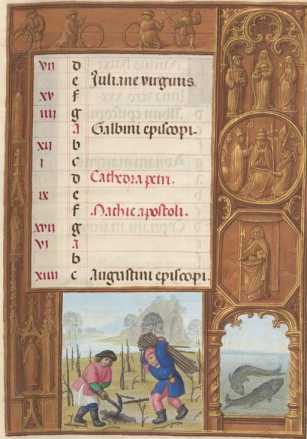 vii d
e Iuliane virginis
xv f
iiii g
a Galbini episcopi.
xii b
i c
d Cathedra petri.
ix e
f Mathie apostoli.
xvii g
vi a
b
xiiii c Augustini episcopi.